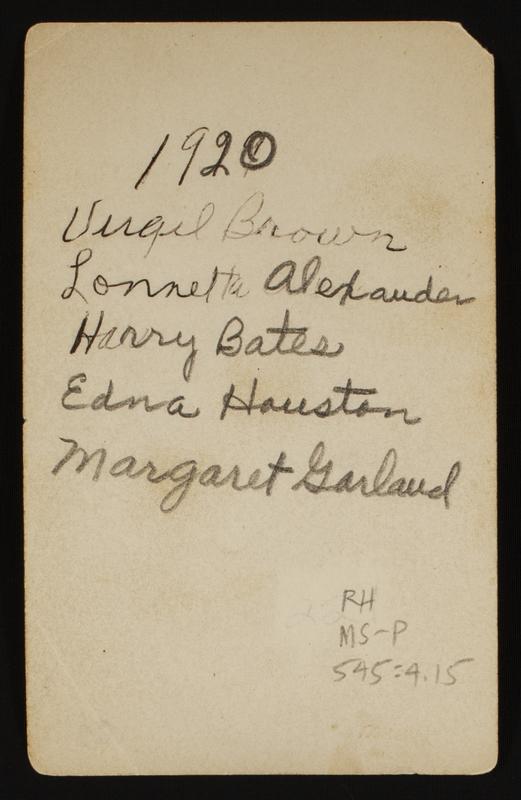 1920
Virgil Brown
Lonnetta Alexander
Harry Bates
Edna Houston
Margaret Garland
RH
MS-P
545:4.15